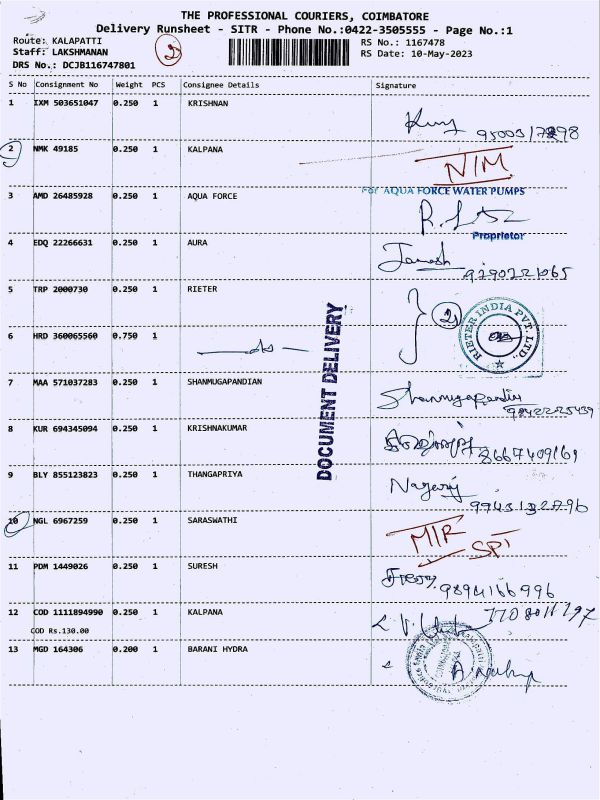 THE PROFESSIONAL COURIERS, COIMBATORE
Delivery Runsheet - SITR - Phone No.:0422-3505555 - Page No.:1
Route: KALAPATTI
Staff: LAKSHMANAN
DRS No.: DCJB116747801
2
RS No.: 1167478
RS Date: 10-May-2023
S No Consignment No Weight PCS Consignee Details Signature
1 IXM 503651047 0.250 1 KRISHNAN
2 NMK 49185 0.250 1 KALPANA NIM
3 AMD 26485928 0.250 1 AQUA FORCE
For AQUA FORCE WATER PUMPS
Proprietor
4 EDQ 22266631 0.250 1 AURA
5 TRP 2000730 0.250 1 RIETER
2
RIETER INDIA PVT. LTD.
6 HRD 360065560 0.750 1
DOCUMENT DELIVERY
7 MAA 571037283 0.250 1 SHANMUGAPANDIAN Shanmugapandian
9842225439
8 KUR 694345094 0.250 1 KRISHNAKUMAR
8667409161
9 BLY 855123823 0.250 1 THANGAPRIYA Nagaraj
10 NGL 6967259 0.250 1 SARASWATHI
11 PDM 1449026 0.250 1 SURESH
9894166996
12 COD 1111894990 0.250 1 KALPANA
COD Rs.130.00
13 MGD 164306 0.200 1 BARANI HYDRA